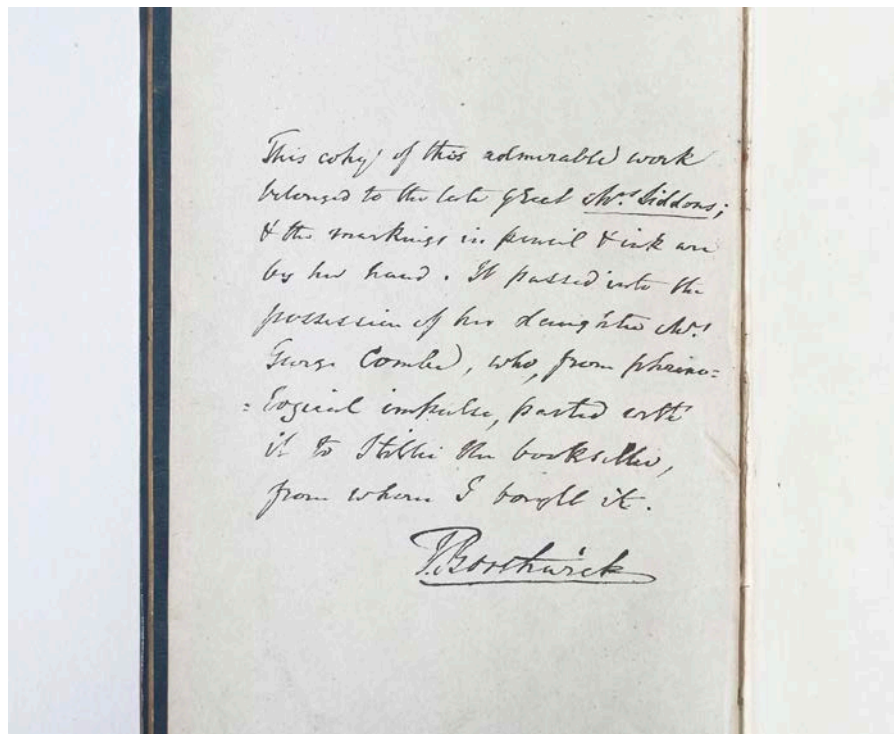 This copy of this admirable work
belonged to the late great Mrs Siddons;
& the markings in pencil & ink are
by her hand. It passed into the
possession of her daughter Mrs
George Combe, who, from phreno=
=logical impulse, parted with
it to Stillie the bookseller,
from whom I bought it.
P. Borthwick